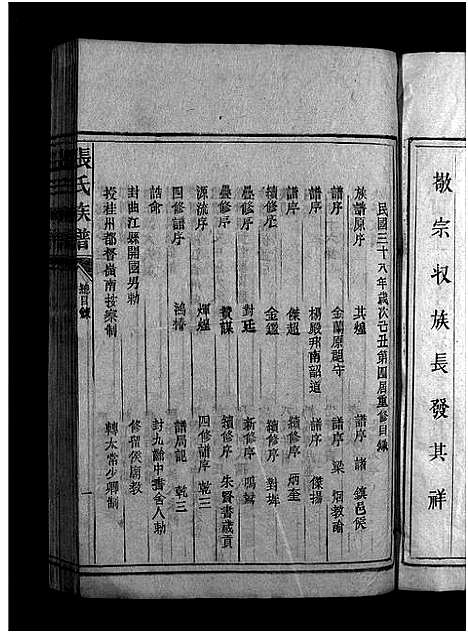 敬宗收族長發其祥
民國三十八年歲次己丑第四屆重修目錄
族譜原序 其爐 譜序 諸 鎮邑侯
譜序 金蘭原韶守 譜序 梁 炯教諭
譜序 楊殿邦南韶道 譜序 傑揚
譜序 傑超 譜序 炳奎
續修序 金鑑 續修序 對墀
疊修序 對廷 新修序 鳴鏘
疊修序 贊謀 續修序 朱賢書歲貢
源流序 煇爐 四修譜序 乾三
四修譜序 鴻椿 譜局龍 乾三
誥命 封九齡中書舍人勅
封曲江縣開國男勅 修留侯廟教
授桂州都督嶺南按察制 轉太常少卿制
張氏族譜 總目錄 一